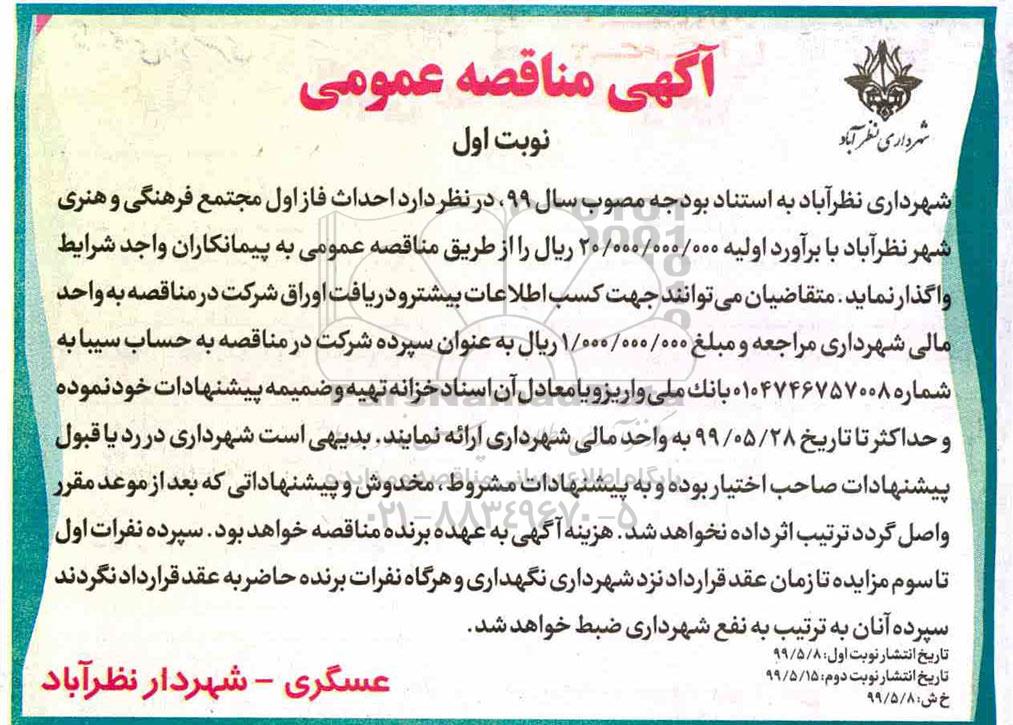 آگهی مناقصه عمومی
شهرداری نظرآباد
نوبت اول
شهرداری نظرآباد به استناد بودجه مصوب سال ۹۹، در نظر دارد احداث فاز اول مجتمع فرهنگی و هنری
شهر نظرآباد با برآورد اولیه ۲۰/۰۰۰/۰۰۰/۰۰۰ ریال را از طریق مناقصه عمومی به پیمانکاران واجد شرایط
واگذار نماید. متقاضیان می‌توانند جهت کسب اطلاعات بیشتر و دریافت اوراق شرکت در مناقصه به واحد
مالی شهرداری مراجعه و مبلغ ۱/۰۰۰/۰۰۰/۰۰۰ ریال به عنوان سپرده شرکت در مناقصه به حساب سیبا به
شماره ۰۱۰۴۷۴۶۷۵۷۰۰۸ بانک ملی واریز و یا معادل آن اسناد خزانه تهیه و ضمیمه پیشنهادات خود نموده
و حداکثر تا تاریخ ۹۹/۰۵/۲۸ به واحد مالی شهرداری ارائه نمایند. بدیهی است شهرداری در رد یا قبول
پیشنهادات صاحب اختیار بوده و به پیشنهادات مشروط، مخدوش و پیشنهاداتی که بعد از موعد مقرر
واصل گردد ترتیب اثر داده نخواهد شد. هزینه آگهی به عهده برنده مناقصه خواهد بود. سپرده نفرات اول
تا سوم مزایده تا زمان عقد قرارداد نزد شهرداری نگهداری و هرگاه نفرات برنده حاضر به عقد قرارداد نگردند
سپرده آنان به ترتیب به نفع شهرداری ضبط خواهد شد.
تاریخ انتشار نوبت اول: ۹۹/۵/۸
تاریخ انتشار نوبت دوم: ۹۹/۵/۱۵
خ ش: ۹۹/۵/۸
عسگری - شهردار نظرآباد
۰۲۱-۸۸۳۴۹۶۷۰-۵